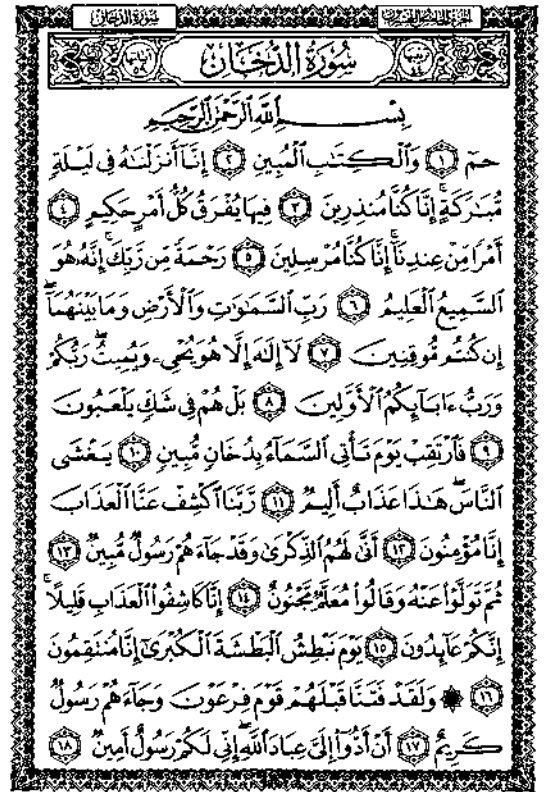 سُورَةُ الدُّخَانِ
الجُزْءُ الخَامِسُ وَالعِشْرُونَ
سُورَةُ الدُّخَانِ
بِسْمِ ٱللَّهِ ٱلرَّحْمَٰنِ ٱلرَّحِيمِ
حمٓ ﴿١﴾ وَٱلْكِتَٰبِ ٱلْمُبِينِ ﴿٢﴾ إِنَّآ أَنزَلْنَٰهُ فِى لَيْلَةٍ
مُّبَٰرَكَةٍ ۚ إِنَّا كُنَّا مُنذِرِينَ ﴿٣﴾ فِيهَا يُفْرَقُ كُلُّ أَمْرٍ حَكِيمٍ ﴿٤﴾
أَمْرًا مِّنْ عِندِنَآ ۚ إِنَّا كُنَّا مُرْسِلِينَ ﴿٥﴾ رَحْمَةً مِّن رَّبِّكَ ۚ إِنَّهُۥ هُوَ
ٱلسَّمِيعُ ٱلْعَلِيمُ ﴿٦﴾ رَبِّ ٱلسَّمَٰوَٰتِ وَٱلْأَرْضِ وَمَا بَيْنَهُمَآ ۖ
إِن كُنتُم مُّوقِنِينَ ﴿٧﴾ لَآ إِلَٰهَ إِلَّا هُوَ يُحْىِۦ وَيُمِيتُ ۖ رَبُّكُمْ
وَرَبُّ ءَابَآئِكُمُ ٱلْأَوَّلِينَ ﴿٨﴾ بَلْ هُمْ فِى شَكٍّ يَلْعَبُونَ
﴿٩﴾ فَٱرْتَقِبْ يَوْمَ تَأْتِى ٱلسَّمَآءُ بِدُخَانٍ مُّبِينٍ ﴿١٠﴾ يَغْشَى
ٱلنَّاسَ ۖ هَٰذَا عَذَابٌ أَلِيمٌ ﴿١١﴾ رَّبَّنَا ٱكْشِفْ عَنَّا ٱلْعَذَابَ
إِنَّا مُؤْمِنُونَ ﴿١٢﴾ أَنَّىٰ لَهُمُ ٱلذِّكْرَىٰ وَقَدْ جَآءَهُمْ رَسُولٌ مُّبِينٌ ﴿١٣﴾
ثُمَّ تَوَلَّوْا۟ عَنْهُ وَقَالُوا۟ مُعَلَّمٌ مَّجْنُونٌ ﴿١٤﴾ إِنَّا كَاشِفُوا۟ ٱلْعَذَابِ قَلِيلًا ۚ
إِنَّكُمْ عَآئِدُونَ ﴿١٥﴾ يَوْمَ نَبْطِشُ ٱلْبَطْشَةَ ٱلْكُبْرَىٰٓ إِنَّا مُنتَقِمُونَ
﴿١٦﴾ ۞ وَلَقَدْ فَتَنَّا قَبْلَهُمْ قَوْمَ فِرْعَوْنَ وَجَآءَهُمْ رَسُولٌ
كَرِيمٌ ﴿١٧﴾ أَنْ أَدُّوٓا۟ إِلَىَّ عِبَادَ ٱللَّهِ ۖ إِنِّى لَكُمْ رَسُولٌ أَمِينٌ ﴿١٨﴾